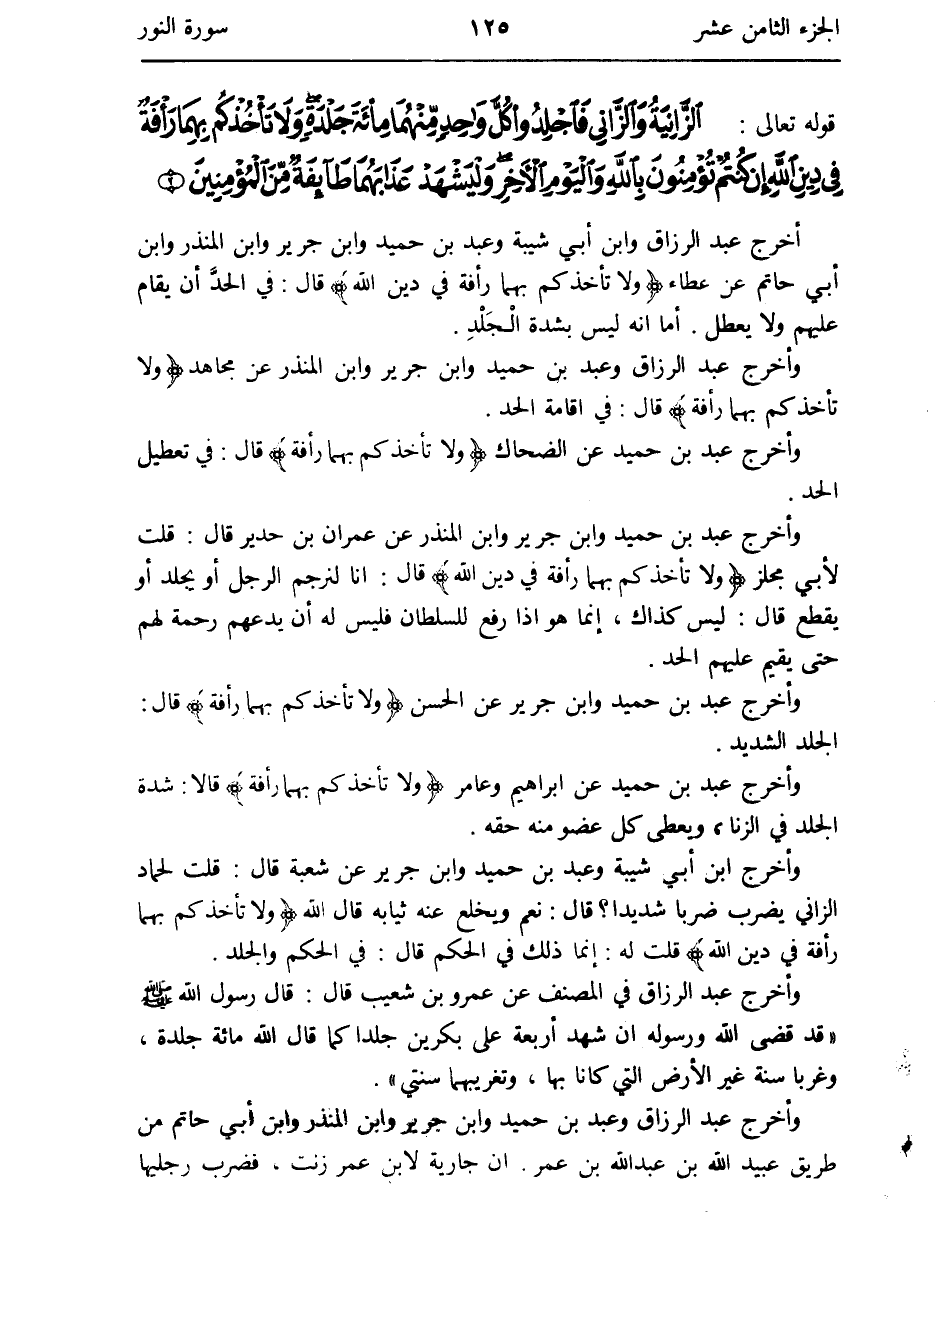 الجزء الثامن عشر ١٢٥ سورة النور
قوله تعالى : ٱلزَّانِيَةُ وَٱلزَّانِي فَٱجْلِدُوا۟ كُلَّ وَٰحِدٍ مِّنْهُمَا مِا۟ئَةَ جَلْدَةٍ ۖ وَلَا تَأْخُذْكُم بِهِمَا رَأْفَةٌ
فِي دِينِ ٱللَّهِ إِن كُنتُمْ تُؤْمِنُونَ بِٱللَّهِ وَٱلْيَوْمِ ٱلْأَخِرِ ۖ وَلْيَشْهَدْ عَذَابَهُمَا طَآئِفَةٌ مِّنَ ٱلْمُؤْمِنِينَ ﴿٢﴾
أخرج عبد الرزاق وابن أبي شيبة وعبد بن حميد وابن جرير وابن المنذر وابن
أبي حاتم عن عطاء ﴿ ولا تأخذكم بهما رأفة في دين الله ﴾ قال : في الحدَّ أن يقام
عليهم ولا يعطل . أما انه ليس بشدة الْجَلْدِ .
وأخرج عبد الرزاق وعبد بن حميد وابن جرير وابن المنذر عن مجاهد ﴿ ولا
تأخذكم بهما رأفة ﴾ قال : في اقامة الحد .
وأخرج عبد بن حميد عن الضحاك ﴿ ولا تأخذكم بهما رأفة ﴾ قال : في تعطيل
الحد .
وأخرج عبد بن حميد وابن جرير وابن المنذر عن عمران بن حدير قال : قلت
لأبي مجلز ﴿ ولا تأخذكم بهما رأفة في دين الله ﴾ قال : انا لنرجم الرجل أو يجلد أو
يقطع قال : ليس كذاك ، إنما هو اذا رفع للسلطان فليس له أن يدعهم رحمة لهم
حتى يقيم عليهم الحد .
وأخرج عبد بن حميد وابن جرير عن الحسن ﴿ ولا تأخذكم بهما رأفة ﴾ قال :
الجلد الشديد .
وأخرج عبد بن حميد عن ابراهيم وعامر ﴿ ولا تأخذكم بهما رأفة ﴾ قالا : شدة
الجلد في الزنا ، ويعطى كل عضو منه حقه .
وأخرج ابن أبي شيبة وعبد بن حميد وابن جرير عن شعبة قال : قلت لحماد
الزاني يضرب ضربا شديدا؟ قال : نعم ويخلع عنه ثيابه قال الله ﴿ ولا تأخذكم بهما
رأفة في دين الله ﴾ قلت له : إنما ذلك في الحكم قال : في الحكم والجلد .
وأخرج عبد الرزاق في المصنف عن عمرو بن شعيب قال : قال رسول الله ﷺ
« قد قضى الله ورسوله ان شهد أربعة على بكرين جلدا كما قال الله مائة جلدة ،
وغربا سنة غير الأرض التي كانا بها ، وتغريبهما سنتي » .
وأخرج عبد الرزاق وعبد بن حميد وابن جرير وابن المنذر وابن أبي حاتم من
طريق عبيد الله بن عبدالله بن عمر . ان جارية لابن عمر زنت ، فضرب رجليها